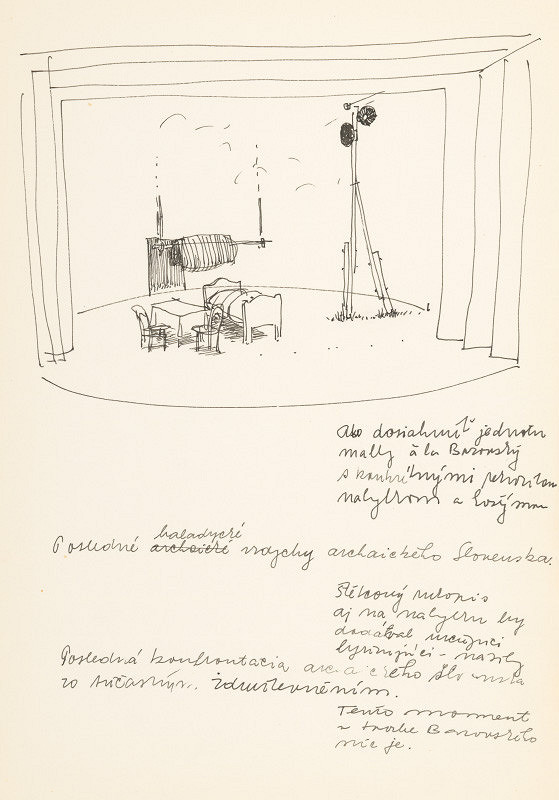 Ako dosiahnúť jednotu
malby á la Bazovský
s konkrétnymi
nábytkom a kostýmom
baladycké
Posledné archaické vzdychy archaického Slovenska.
Štetcový rukopis
aj na nábytku by
dodával
lyrizujúci - násilý
Posledná konfrontácia archaického Slovenska
zo súčasným. zduchovnením.
Tento moment
v tvorbe Bazovského
nie je.